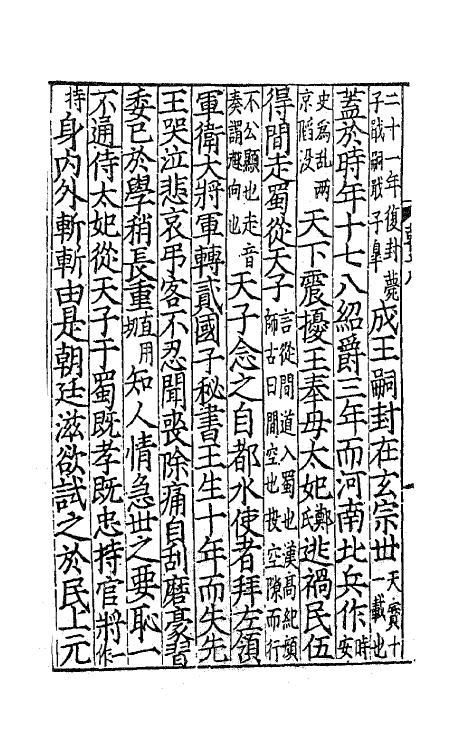 二十一年復封薨子戢嗣戢子皋成王嗣封在玄宗世天寶十一載也
蓋於時年十七八紹爵三年而河南北兵作時安
史為乱兩京陷没天下震擾王奉母太妃鄭氏逃禍民伍
得間走蜀從天子言從間道入蜀也漢高紀顔師古曰間空也投空隙而行
不公顯也走音奏謂趣向也天子念之自都水使者拜左領
軍衛大將軍轉貳國子秘書王生十年而失先
王哭泣悲哀弔客不忍聞喪除痛自刮磨豪習
委己於學稍長重直用切知人情急世之要恥一
不通侍太妃從天子于蜀既孝既忠持官將一作
持身內外斬斬由是朝廷滋欲試之於民上元